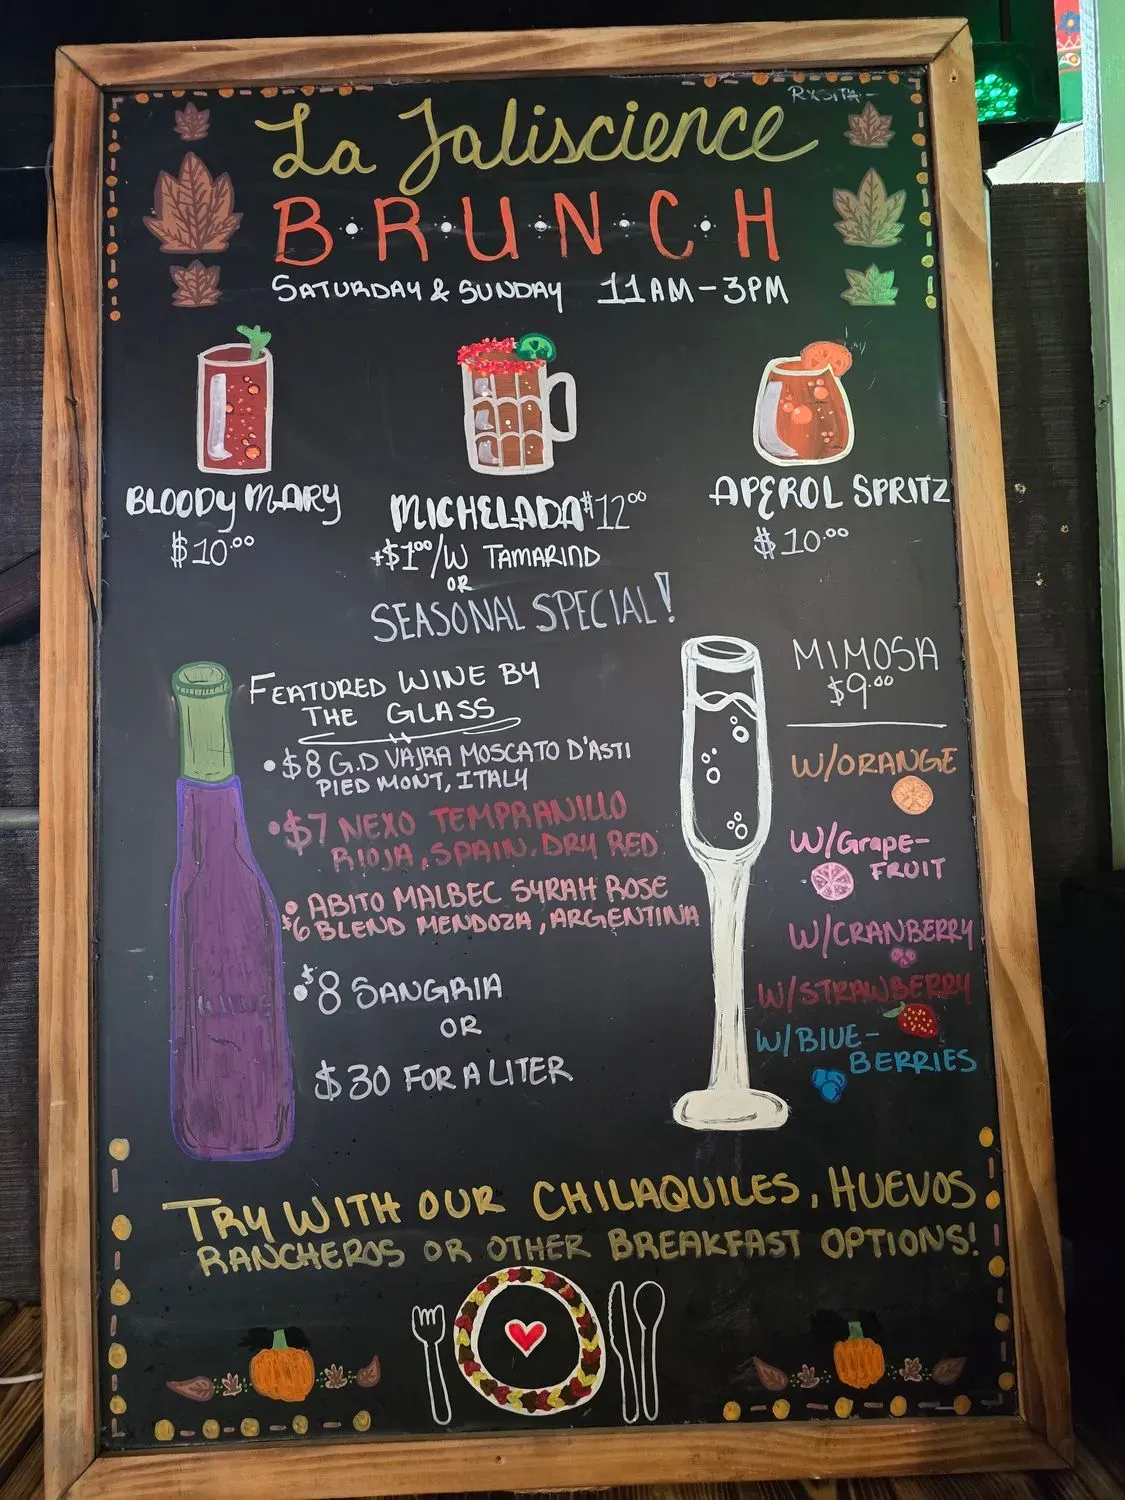 La Jaliscience
B·R·U·N·C·H
SATURDAY & SUNDAY 11AM-3PM
BLOODY MARY
$10.00
MICHELADA $12.00
+$1.00/W TAMARIND
OR
SEASONAL SPECIAL!
APEROL SPRITZ
$10.00
FEATURED WINE BY
THE GLASS
•$8 G.D VAJRA MOSCATO D'ASTI
PIED MONT, ITALY
•$7 NEXO TEMPRANILLO
RIOJA, SPAIN. DRY RED
• ABITO MALBEC SYRAH ROSE
$6 BLEND MENDOZA, ARGENTINA
•$8 SANGRIA
OR
$30 FOR A LITER
MIMOSA
$9.00
W/ORANGE
W/Grape-
FRUIT
W/CRANBERRY
W/STRAWBERRY
W/BLUE-
BERRIES
TRY WITH OUR CHILAQUILES, HUEVOS
RANCHEROS OR OTHER BREAKFAST OPTIONS!